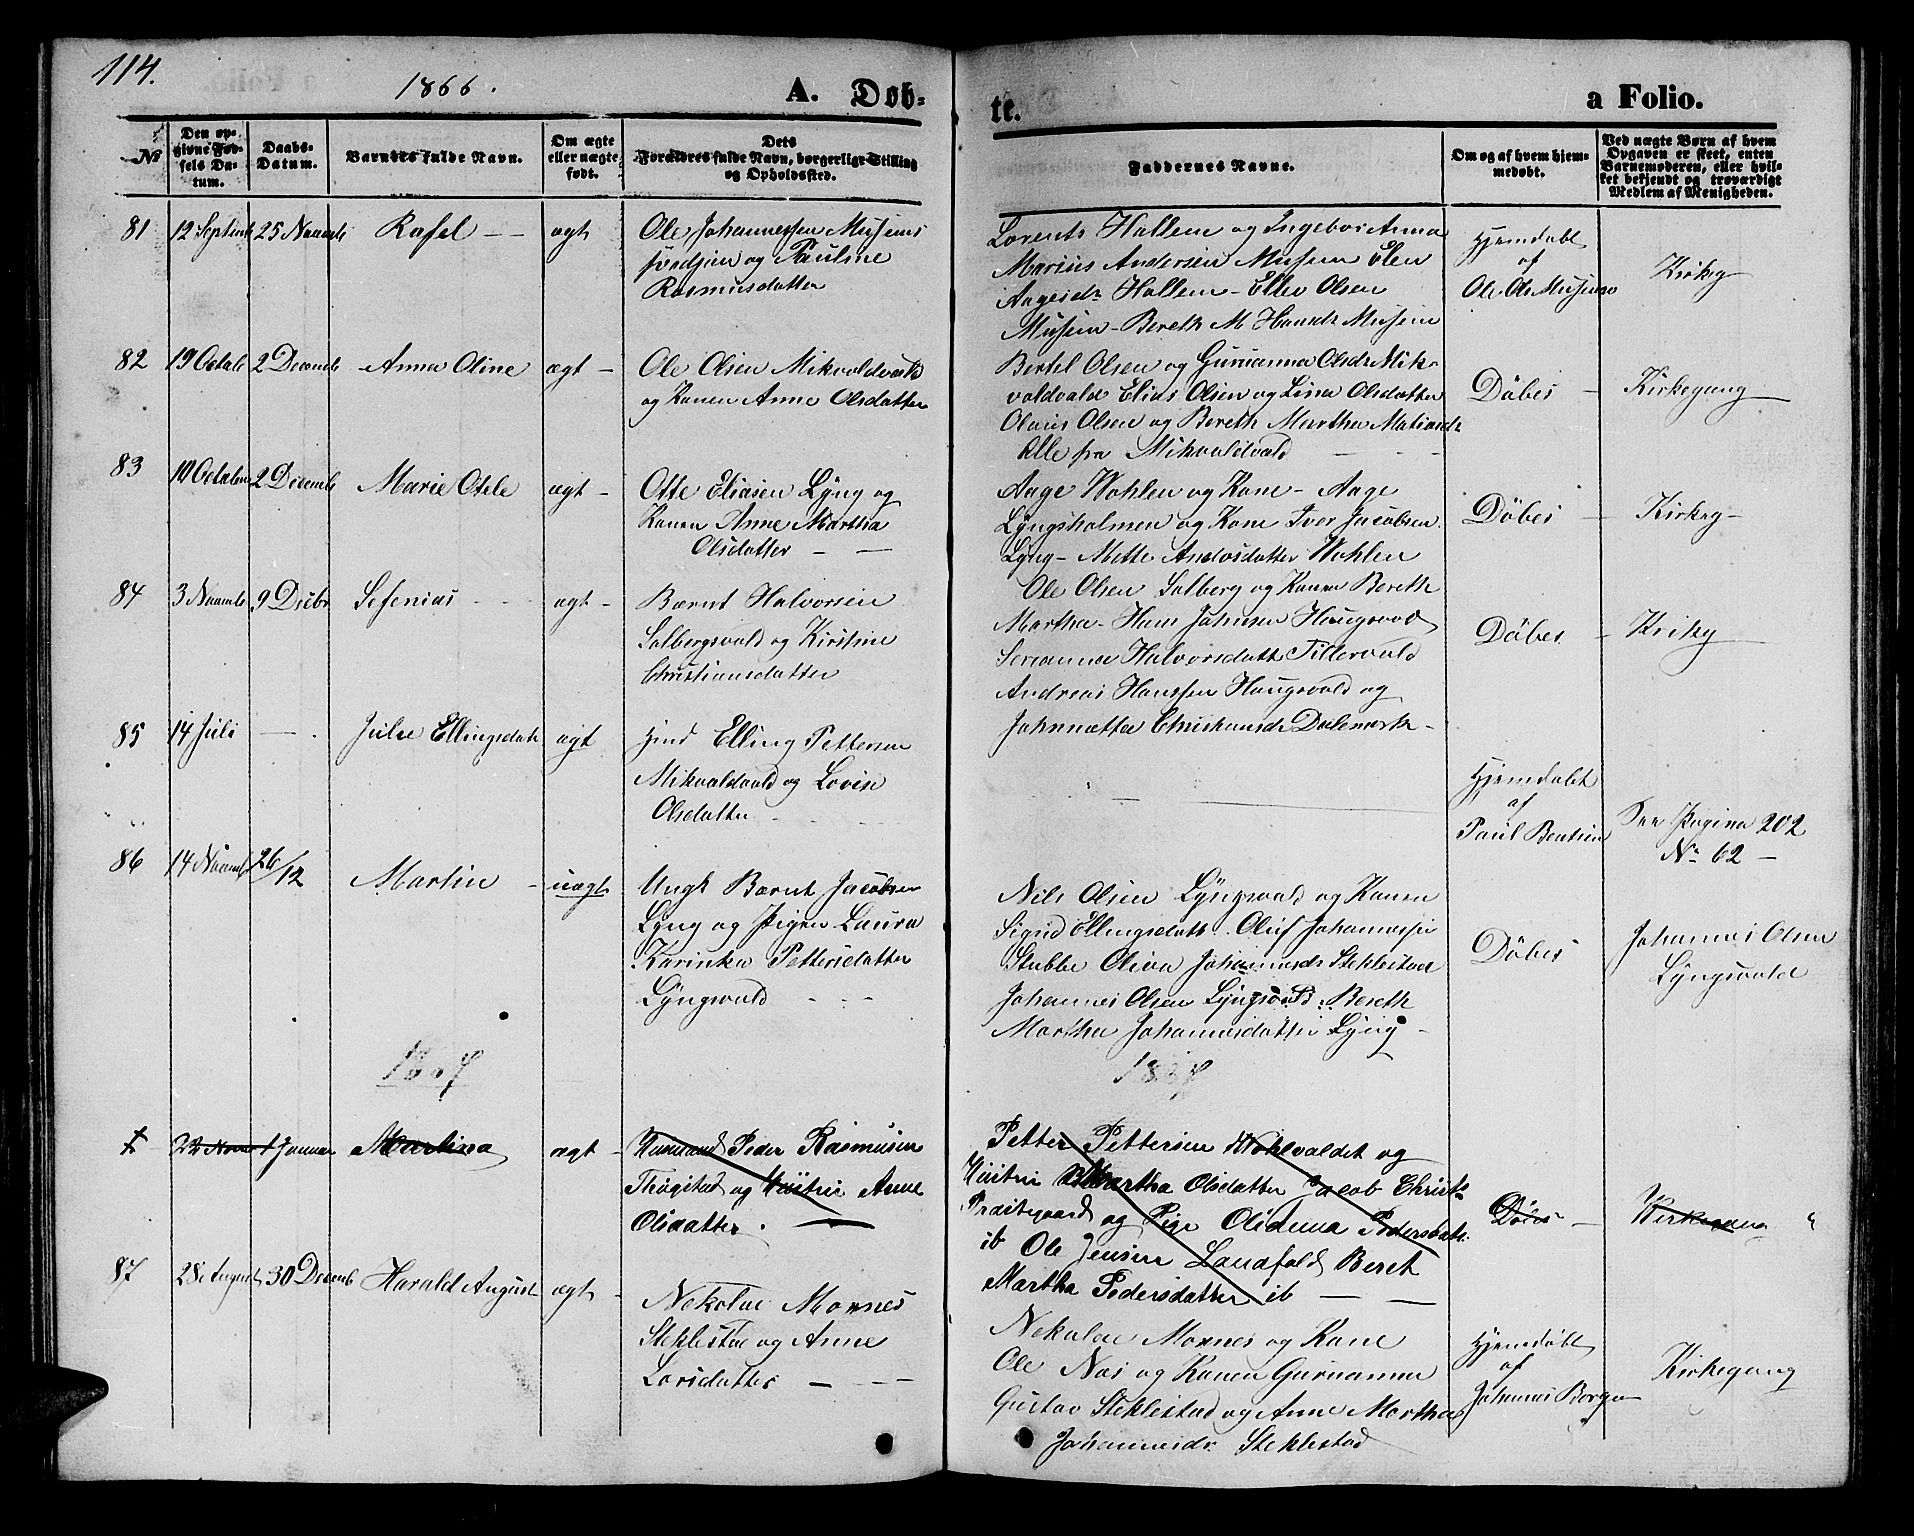 114.
1866.
A. Døb-
te.
a Folio.
No
Den op-
givne Fød-
sels Da-
tum.
Daabs-
Datum.
Barnets fulde Navn.
Om ægte
eller uægte
født.
Dets
Forældres fulde Navn, borgerlige Stilling
og Opholdssted.
Faddernes Navne.
Om og af hvem hjem-
medøbt.
Ved uægte Børn af hvem
Opgaven er skeet, enten
Barnemoderen, eller hvil-
ket bekjendt og troværdigt
Medlem af Menigheden.
81 12 Septimb 25 Novemb Rafel ægt
Ole Johannessen Musums
svedjen og Pauline
Rasmusdatter
Lorents Hallem og Ingebor Anna
Marius Andersen Musum Elen
Aagesdr Hallem - Ellev Olsen
Musum - Bereth M Hansdr Musum
Hjemdøbt
af
Ole Ols Musum
Kirkeg
82 19 Octob 2 Decemb Anna Oline ægt -
Ole Olsen Mikvoldvald
og Konen Anne Olsdatter
Bertel Olsen og Gurianna Olsdr Mik-
voldvald Elias Olsen og Lina Olsdatter
Olaus Olsen og Bereth Martha Matiasdr
Alle fra Mikvoldvald
Döbes - Kirkegang
83 10 Octobm 2 Decemb Marie Otele ægt -
Otte Eliasen Lyng og
Konen Anne Martha
Olsdatter
Aage Wohlen og Kone - Aage
Lyngsholmen og Kone Iver Jacobsen
Lyng - Mette Andersdatter Wohlen
Döbes - Kirkeg -
84 3 Novemb 9 Decbr Sefenias ægt -
Bærnt Halvorsen
Salbergsvald og Kirstine
Christiansdatter
Ole Olsen Salberg og Konen Bereth
Martha - Hans Johnsen Haugsvald
Serianna Halvorsdatt Tillervald
Andreas Hanssen Haugsvald og
Johnætta Christiansdr Dalemark -
Döbes - Kirkeg
85 14 Juli - Julie Ellingsdatt ægt
Elling Pettersen
Mikvoldvald og Lovise
Olsdatter
Hjemdøbt
af
Paul Bentsen
See Pagina 202
No 62 -
86 14 Novemb 26/12 Martin - uægt
Ungk Bærnt Jacobsen
Lyng og Pigen Laura
Karinka Pettersdatter
Lyngsvald
Nils Olsen Lyngsvald og Konen
Sigrid Ellingsdatt. Oluf Johannessen
Stubbe Oliva Johannesdr Stehlestad
Johannes Olsen Lyngsvald. Bereth
Martha Johannesdatter Lyng -
Döbes
Johannes Olsen
Lyngsvald
1867
1867
1 22 Novb 1 Januar Martina ægt -
Husmand Peder Rasmusen
Thrøgstad og Hustru Anne
Olsdatter.
Petter Pettersen Wohlvaldet og
Hustru Martha Olsdatter Jacob Christ
Præstegaard og Pige Olianna Pedersdatt.
ib Ole Jensen Landfald Beret
Martha Pedersdatter ib
Döbes - Kirkegang
87 28 August 30 Decemb Harald August ægt -
Nekolai Moxnes
Stehlestad og Anne
Larsdatter
Nekolai Moxnes og Kone
Ole Næs og Konen Gurianna
Gustav Stehlestad og Anne Martha
Johannesdr Stehlestad
Hjemdøbt
af
Johannes Borgen
Kirkegang